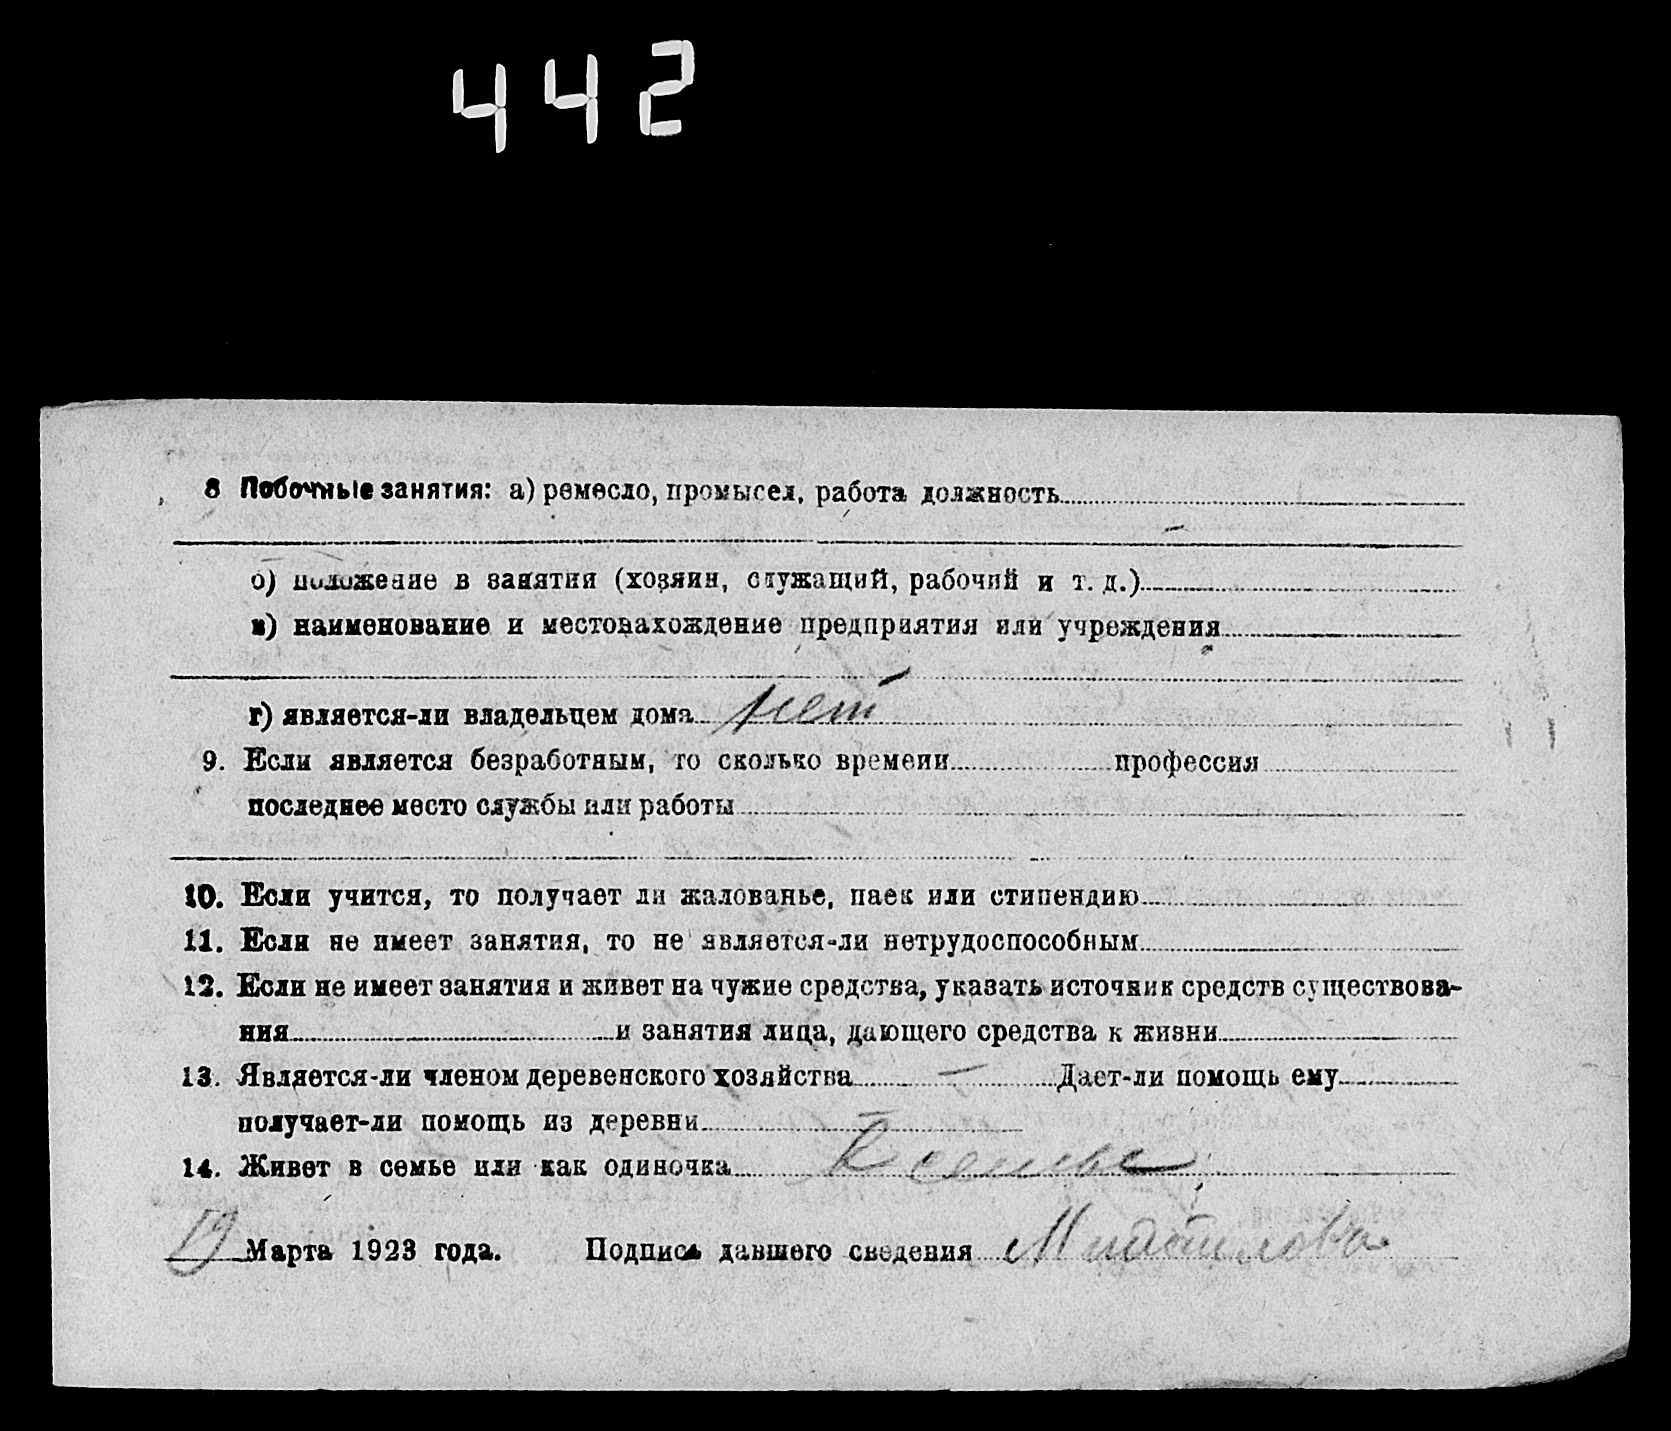 442
8 Побочные занятия: а) ремесло, промысел, работа должность
—
б) положение в занятии (хозяин, служащий, рабочий и т. д.)
в) наименование и местонахождение предприятия или учреждения
г) является-ли владельцем дома нет
9. Если является безработным, то сколько времени профессия
последнее место службы или работы
10. Если учится, то получает ли жалованье, паек или стипендию
11. Если не имеет занятия, то не является-ли нетрудоспособным
12. Если не имеет занятия и живет на чужие средства, указать источник средств существова-
ния и занятия лица, дающего средства к жизни
13. Является-ли членом деревенского хозяйства — Дает-ли помощь ему
получает-ли помощь из деревни —
14. Живет в семье или как одиночка в семье
Марта 1923 года. Подпись давшего сведения